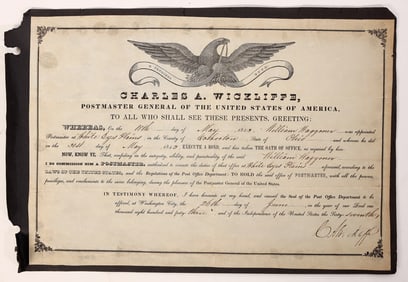 CHARLES A. WICKLIFFE,
POSTMASTER GENERAL OF THE UNITED STATES OF AMERICA,
TO ALL WHO SHALL SEE THESE PRESENTS, GREETING:
WHEREAS, On the day of May 1843, William Waggoner was appointed
Postmaster at Plains in the County of State of Ohio and whereas he did
on the day of May 1843 EXECUTE A BOND, and has taken THE OATH OF OFFICE, as required by law:
NOW, KNOW YE, That confiding in the integrity, ability, and punctuality of the said William Waggoner
I DO COMMISSION HIM A POSTMASTER, authorized to execute the duties of that Office at Plains aforesaid, according to the
LAWS OF THE UNITED STATES, and the Regulations of the Post Office Department: TO HOLD the said office of POSTMASTER, with all the powers,
privileges, and emoluments to the same belonging, during the pleasure of the Postmaster General of the United States.
IN TESTIMONY WHEREOF, I have hereunto set my hand, and caused the Seal of the Post Office Department to be
affixed, at Washington City, the day of June in the year of our Lord one
thousand eight hundred and forty three and of the Independence of the United States the Sixty seventh